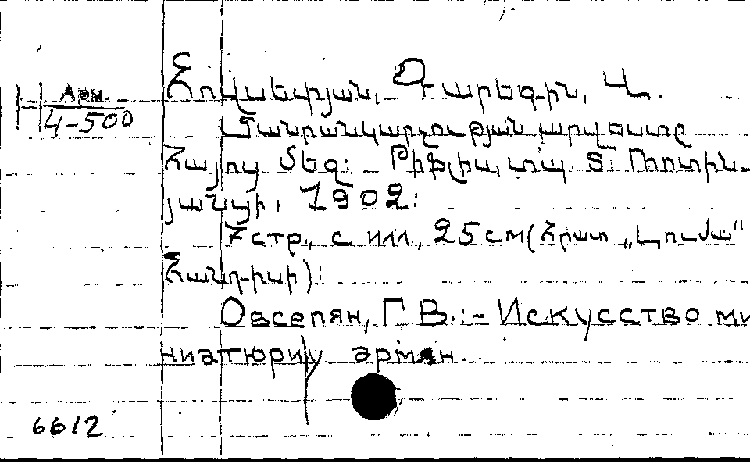 Арм.
4-500
Հովսեփյան, Գարեգին, Վ.
Մանրանկարչության արվեստը
Հայոց մեզ: - Թիֆլիս, տպ. Տ. Ռոտին-
յանցի, 1902:
7 стр., с илл, 25 см (Հրատ. „Լումա"
Հանդիսի):
Овсепян, Г. В.: - Искусство ми
ниатюри у армян.
6612